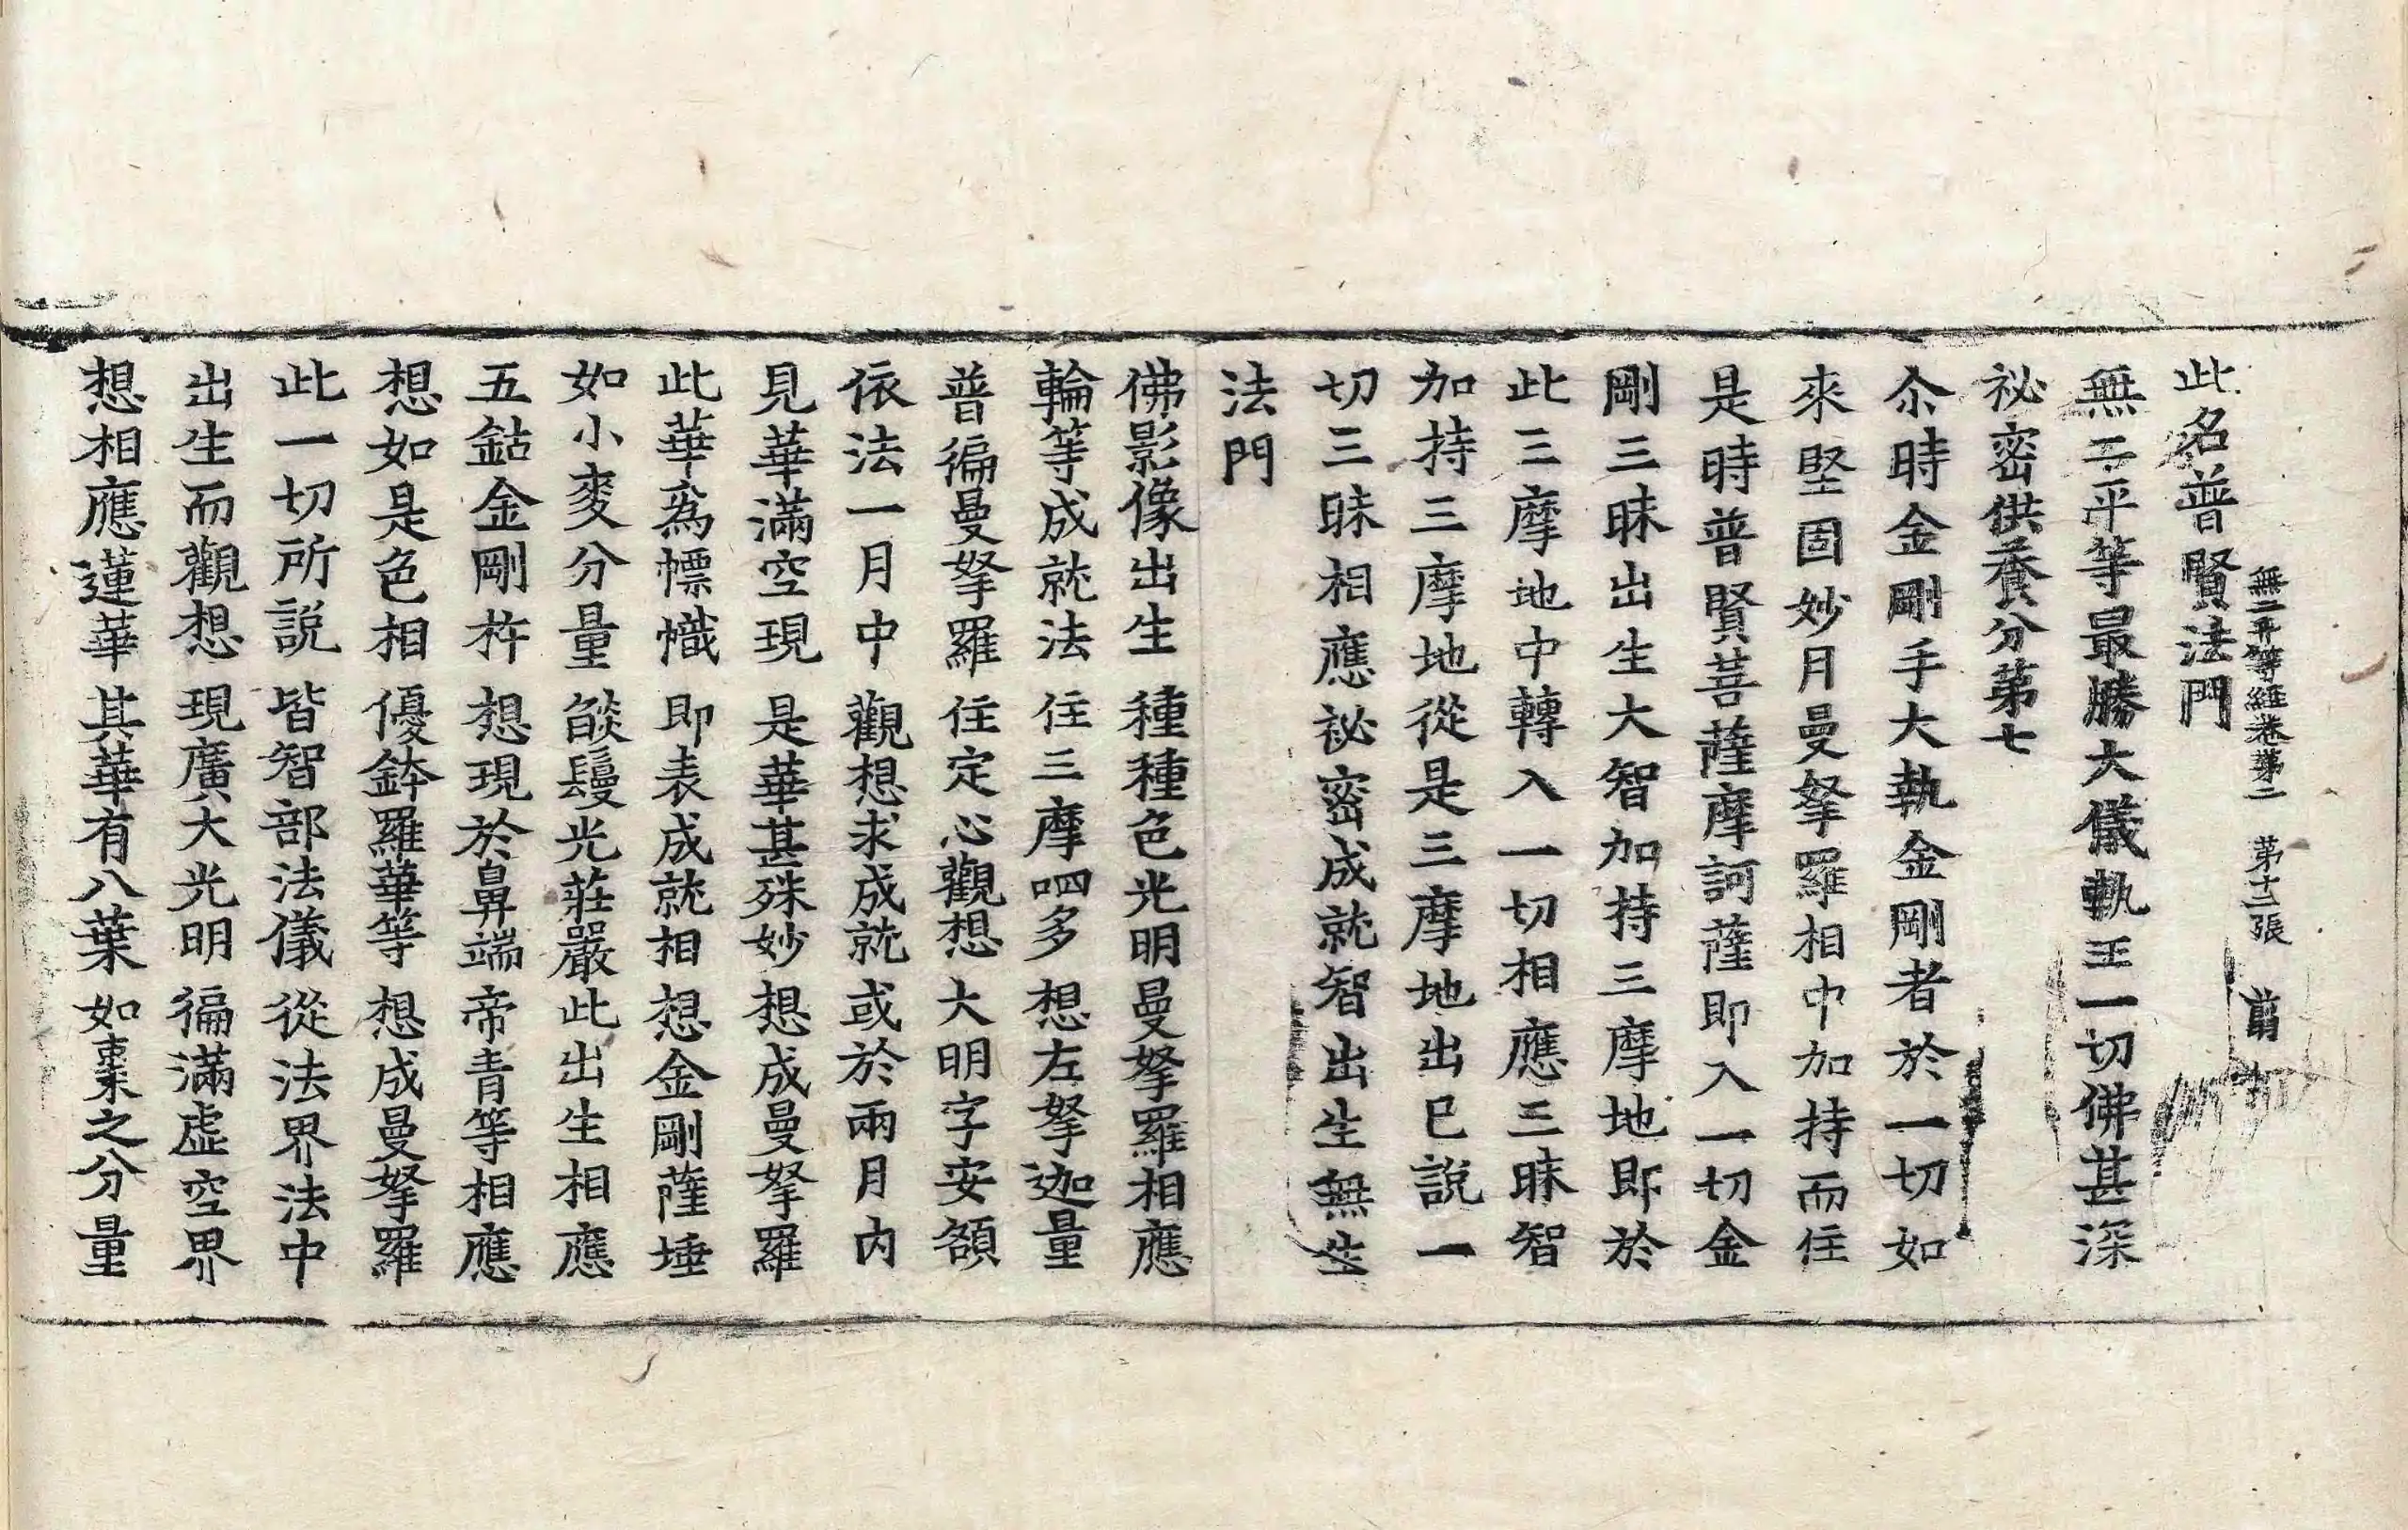 無二平等經卷第二 第十二張 翦
此名普賢法門
無二平等最勝大儀軌王一切佛甚深
祕密供養分第七
尒時金剛手大執金剛者於一切如
來堅固妙月曼拏羅相中加持而住
是時普賢菩薩摩訶薩即入一切金
剛三昧出生大智加持三摩地即於
此三摩地中轉入一切相應三昧智
加持三摩地從是三摩地出已說一
切三昧相應祕密成就智出生無生
法門
佛影像出生 種種色光明曼拏羅相應
輪等成就法 住三摩呬多 想左拏迦量
普徧曼拏羅 住定心觀想 大明字安額
依法一月中 觀想求成就 或於兩月內
見華滿空現 是華甚殊妙 想成曼拏羅
此華為幖幟 即表成就相 想金剛薩埵
如小麥分量 燄鬘光莊嚴 此出生相應
五鈷金剛杵 想現於鼻端 帝青等相應
想如是色相 優鉢羅華等 想成曼拏羅
此一切所說 皆智部法儀 從法界法中
出生而觀想 現廣大光明 徧滿虛空界
想相應蓮華 其華有八葉 如棗之分量